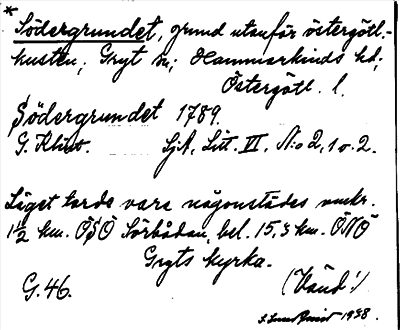 * Södergrundet, grund utanför östergötl.-
kusten; Gryt sn; Hammarkinds hd;
Östergötl. l.
Södergrundet 1789.
G. Klint. SjA, Litt. VI, N:o 2, 1 o. 2.
Läget torde vara någonstädes omkr.
1½ km. ÖSÖ Sörbådan, bel. 15,3 km. ÖNÖ
Gryts kyrka.
G.46. (Vänd!)
1938.